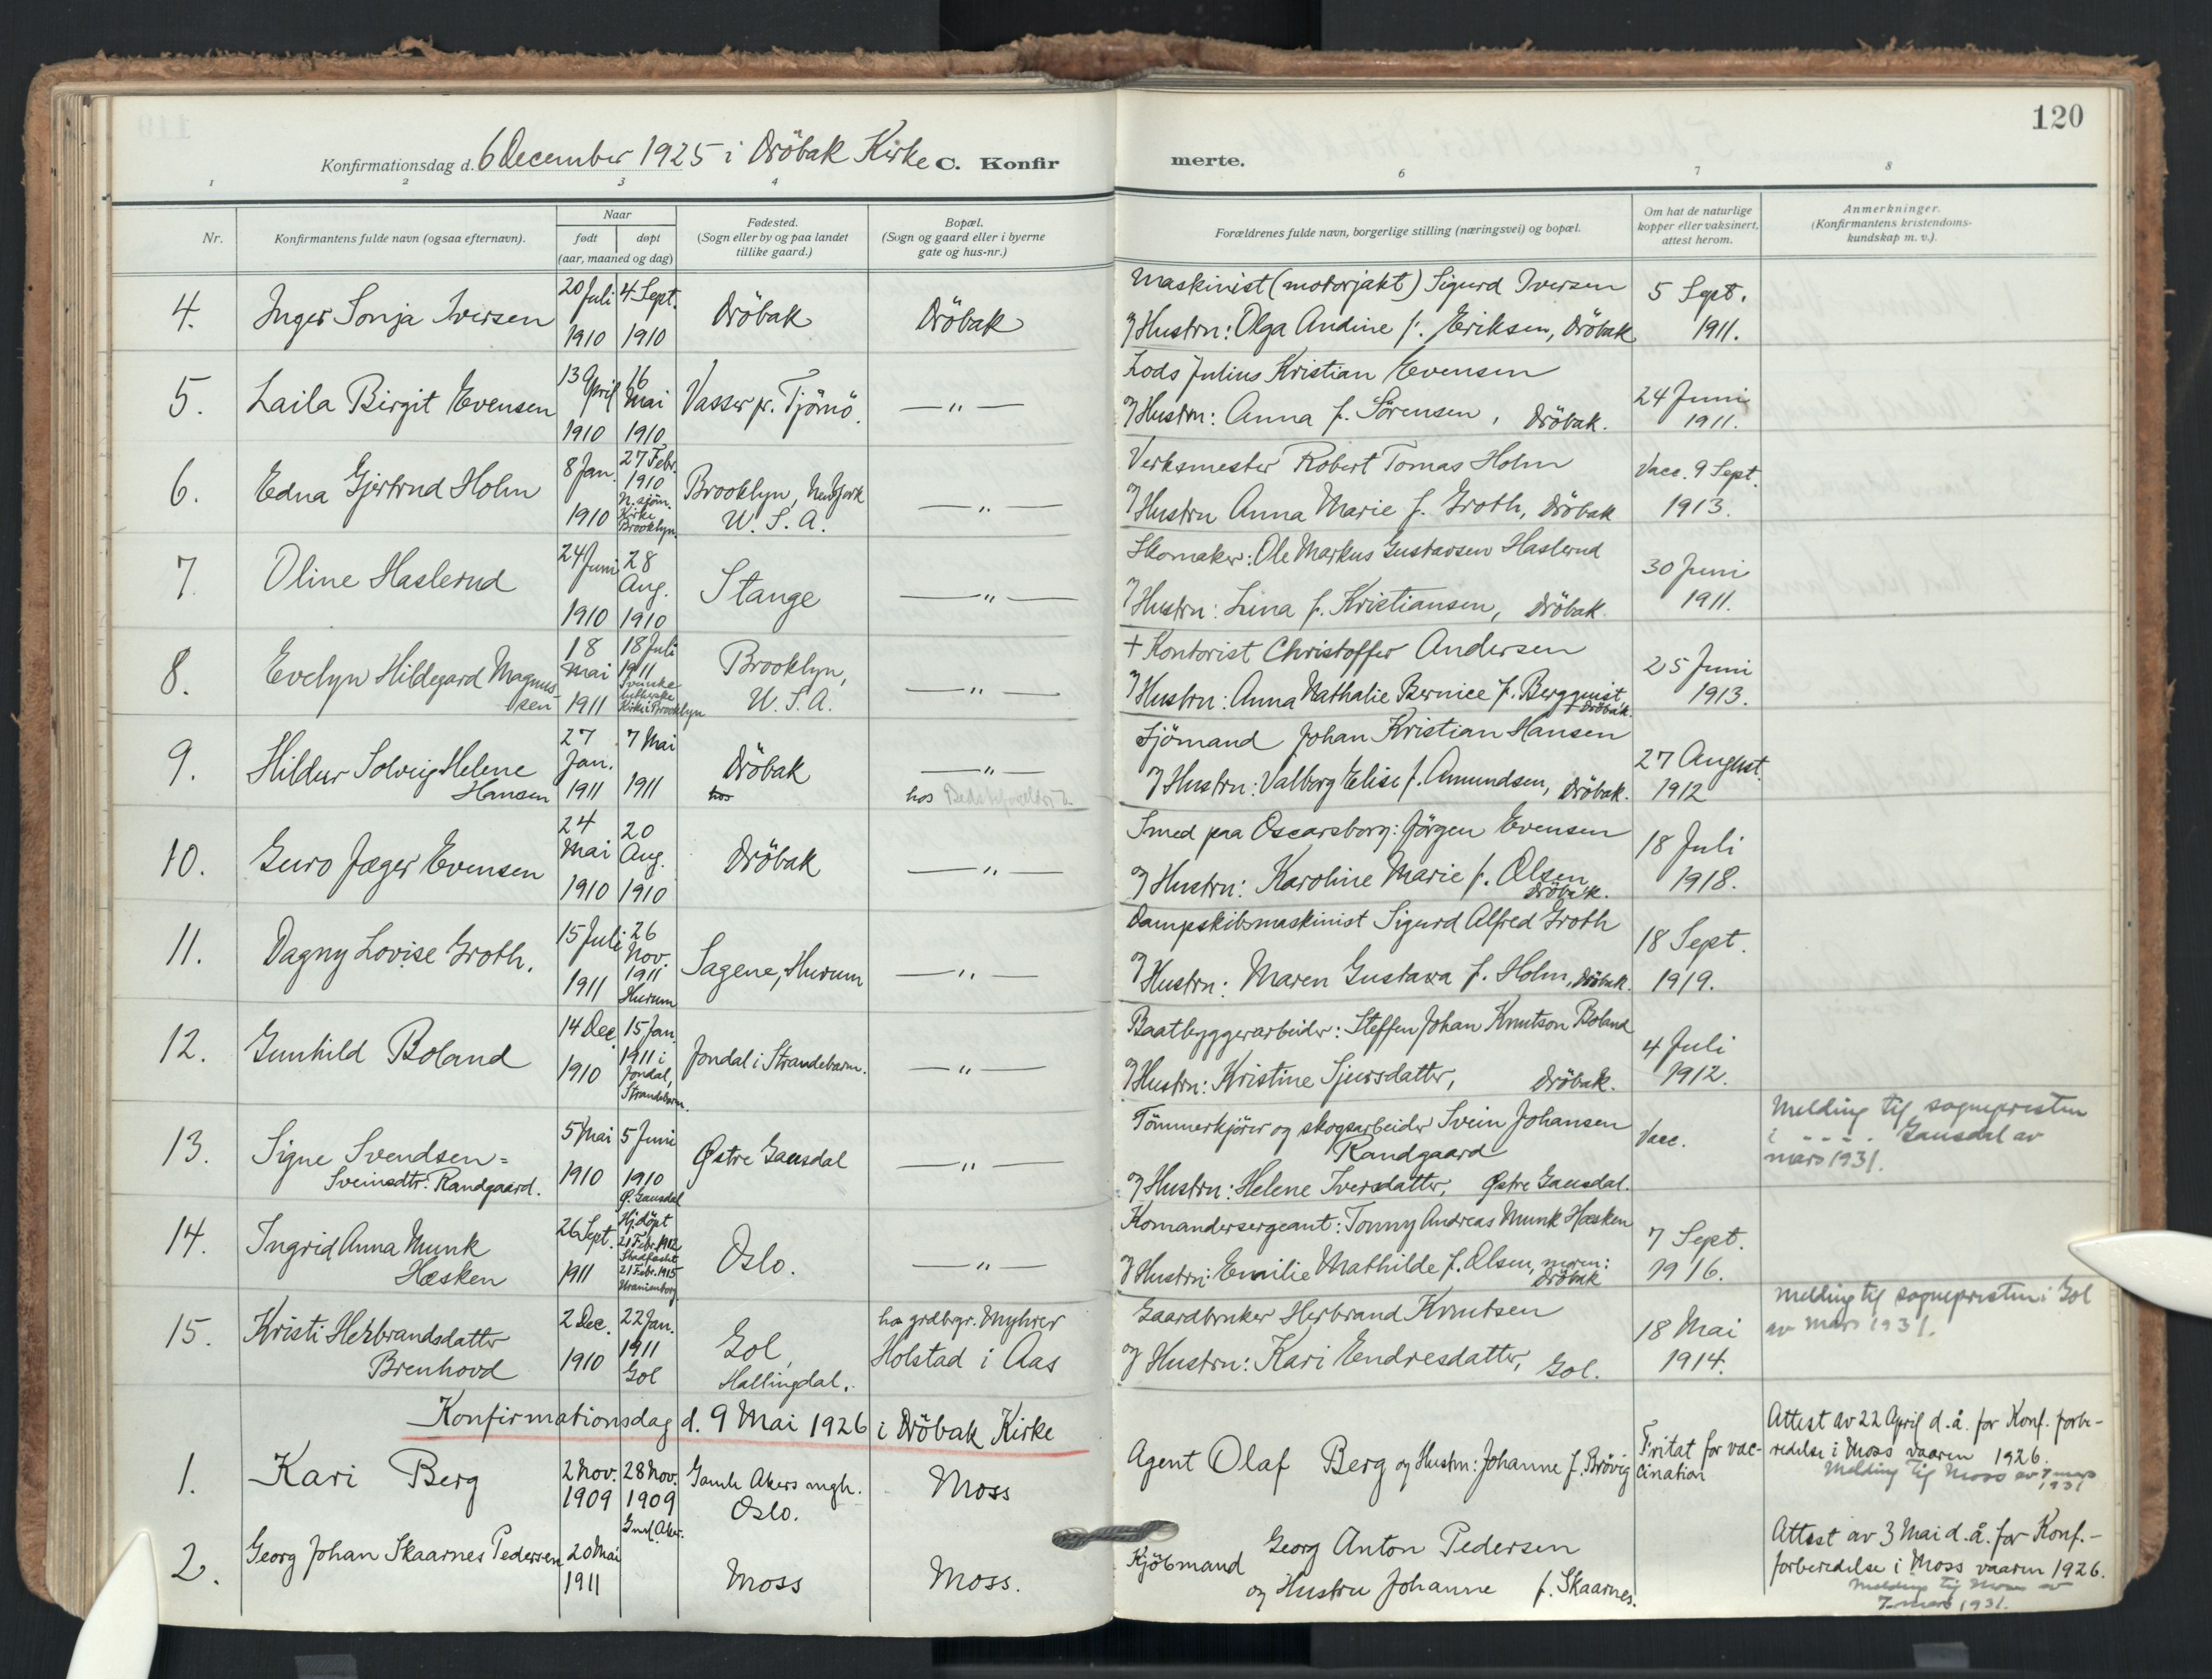 120
Konfirmationsdag d. 6 December 1925 i Dröbak Kirke C. Konfirmerte.
1 2 3 4 6 7 8
Nr.
Konfirmantens fulde navn (ogsaa efternavn).
Naar
født døpt
(aar, maaned og dag)
Fødested.
(Sogn eller by og paa landet
tillike gaard.)
Bopæl.
(Sogn og gaard eller i byerne
gate og hus-nr.)
Forældrenes fulde navn, borgerlige stilling (næringsvei) og bopæl.
Om hat de naturlige
kopper eller vaksinert,
attest herom.
Anmerkninger.
(Konfirmantens kristendoms-
kundskap m. v.).
4. Inger Sonja Iversen
20 Juli 1910
4 Sept. 1910
Dröbak
Dröbak
Maskinist (motorjakt) Sigurd Iversen
og Hustru: Olga Andine f. Eriksen, Dröbak
5 Sept. 1911.
5. Laila Birgit Evensen
13 April 1910
16 Mai 1910
Vasser pr. Tjömö.
— " —
Lods Julius Kristian Evensen
og Hustru: Anna f. Sörensen, Dröbak.
24 Juni 1911.
6. Edna Gjertrud Holm
8 Jan. 1910
27 Febr. 1910
N. sjöm. Kirke Brooklyn.
Brooklyn, New York
U. S. A.
— " —
Verksmester Robert Tomas Holm
og Hustru Anna Marie f. Groth, Dröbak
Vacc. 9 Sept. 1913.
7. Oline Haslerud
24 Juni 1910
28 Aug. 1910
Stange
— " —
Skomaker: Ole Markus Gustavsen Haslerud
og Hustru: Lina f. Kristiansen, Dröbak.
30 Juni 1911.
8. Evelyn Hildegard Magnus-
sen
18 Mai 1911
18 Juli 1911
Svenske lutherske Kirke i Brooklyn
Brooklyn,
U. S. A.
— " —
+ Kontorist Christoffer Andersen
og Hustru: Anna Nathalie Bernice f. Bergquist
+ Dröbak.
25 Juni 1913.
9. Hildur Solveig Helene
Hansen
27 Jan. 1911
7 Mai 1911
Dröbak
hos
— " —
hos
Sjömand Johan Kristian Hansen
og Hustru: Valborg Elise f. Amundsen, Dröbak.
27 August 1912
10. Guro Jæger Evensen
24 Mai 1910
20 Aug. 1910
Dröbak
— " —
Smed paa Oscarsborg: Jörgen Evensen
og Hustru: Karoline Marie f. Olsen
Dröbak.
18 Juli 1918.
11. Dagny Lovise Groth.
15 Juli 1911
26 Nov. 1911 Hurum
Sagene, Hurum
— " —
Dampskibsmaskinist Sigurd Alfred Groth
og Hustru: Maren Gustava f. Holm, Dröbak.
18 Sept. 1919.
12. Gunhild Boland
14 Dec. 1910
15 Jan. 1911 i Jondal, Strandebarm.
Jondal i Strandebarm.
— " —
Baatbyggerarbeider: Steffen Johan Knutson Boland
og Hustru: Kristine Sjursdatter, Dröbak.
4 Juli 1912.
13. Signe Svendsen=
Sveinsdtr. Randgaard.
5 Mai 1910
5 Juni 1910 Ø. Gausdal
Østre Gausdal
— " —
Tömmerkjörer og skogsarbeider Svein Johansen
Randgaard
og Hustru: Helene Iversdatter, Østre Gausdal.
Vacc.
Melding til sognepresten
i - - - - Gausdal av
mars 1931.
14. Ingrid Anna Munk
Hæsken
26 Sept. 1911
Hj.döpt 21 Febr. 1912
Stadfæstet 21 Febr. 1915 Uranienborg
Oslo.
— " —
Komandersergeant: Tonny Andreas Munk Hæsken
og Hustru: Emilie Mathilde f. Olsen,
Dröbak
7 Sept. 1916.
15. Kristi Herbrandsdatter
Brenhovd
2 Dec. 1910
22 Jan. 1911 Gol
Gol,
Hallingdal.
hos grdbrgr. Myhrer
Holstad i Aas
Gaardbruker Herbrand Knutsen
og Hustru: Kari Endresdatter, Gol.
18 Mai 1914.
Melding til sognepresten i Gol
av mars 1931.
Konfirmationsdag d. 9 Mai 1926 i Dröbak Kirke
1. Kari Berg
2 Nov. 1909
28 Nov. 1909 Gml. Aker.
Gamle Akers mgh.
Oslo.
Moss
Agent Olaf Berg og Hustru: Johanne f. Brövig
Fritat for vac-
cination
Attest av 22 April d. å. for Konf. forbe-
redelse i Moss vaaren 1926.
Melding til Moss av 7 mars
1931
2. Georg Johan Skaarnes Pedersen
20 Mai 1911
Moss
Moss.
Kjöbmand Georg Anton Pedersen
og Hustru Johanne f. Skaarnes.
Attest av 3 Mai d. å. for Konf.-
forberedelse i Moss vaaren 1926.
Melding til Moss av
7 mars 1931.